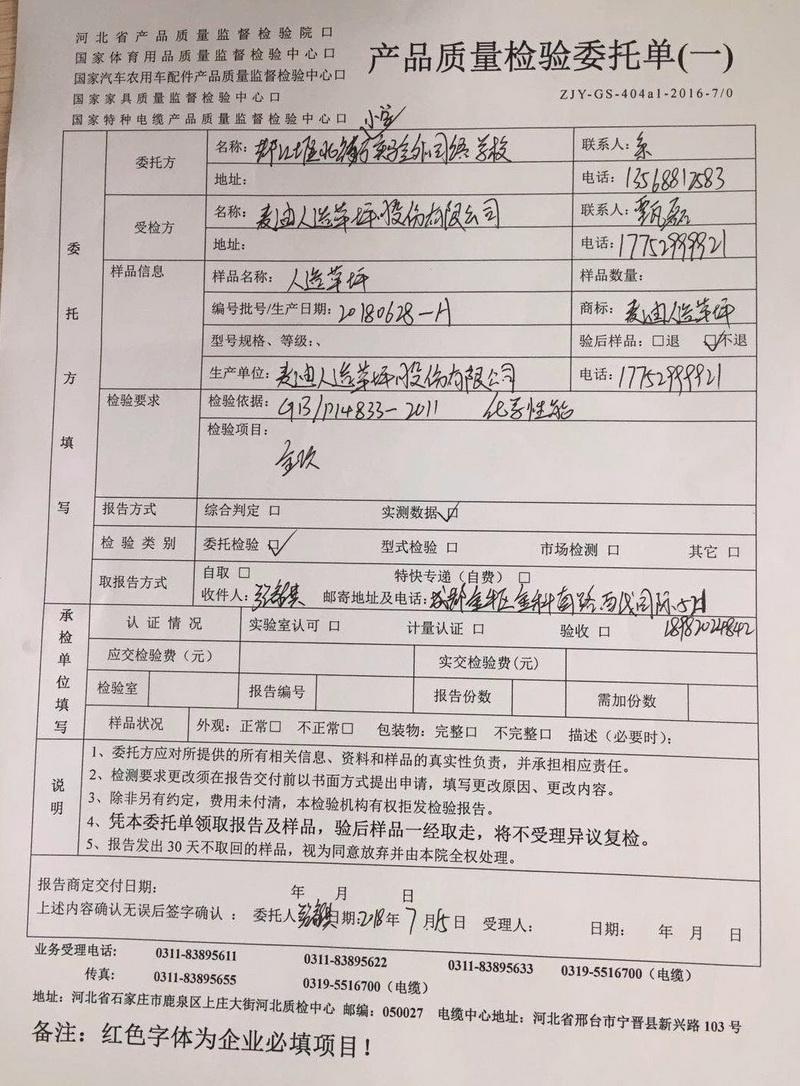 河北省产品质量监督检验院口
国家体育用品质量监督检验中心口
国家汽车农用车配件产品质量监督检验中心口
国家家具质量监督检验中心口
国家特种电缆产品质量监督检验中心口
产品质量检验委托单(一)
ZJY-GS-404a1-2016-7/0
委托方填写
委托方 名称: 都江堰北街小学实验外国语学校 联系人:
地址: 电话: 13568812583
受检方 名称: 麦迪人造草坪股份有限公司 联系人:
地址: 电话: 17752999921
样品信息 样品名称: 人造草坪 样品数量:
编号批号/生产日期: 20180628-A 商标: 麦迪人造草坪
型号规格、等级:、 验后样品: 口退 口不退
生产单位: 麦迪人造草坪股份有限公司 电话: 17752999921
检验要求 检验依据: GB/T14833-2011 化学性能
检验项目:
全项
报告方式 综合判定 口 实测数据 口
检 验 类 别 委托检验 口 型式检验 口 市场检测 口 其它 口
取报告方式 自取 口 特快专递（自费）口
收件人: 邮寄地址及电话: 成都金牛区金科南路 国际 521
18982024842
承检单位填写
认 证 情 况 实验室认可 口 计量认证 口 验收 口
应交检验费（元） 实交检验费(元)
检验室 报告编号 报告份数 需加份数
样品状况 外观: 正常口 不正常口 包装物: 完整口 不完整口 描述（必要时）:
说明
1、委托方应对所提供的所有相关信息、资料和样品的真实性负责，并承担相应责任。
2、检测要求更改须在报告交付前以书面方式提出申请，填写更改原因、更改内容。
3、除非另有约定，费用未付清，本检验机构有权拒发检验报告。
4、凭本委托单领取报告及样品，验后样品一经取走，将不受理异议复检。
5、报告发出 30 天不取回的样品，视为同意放弃并由本院全权处理。
报告商定交付日期: 年 月 日
上述内容确认无误后签字确认 : 委托人 日期: 2018 年 7 月 15 日 受理人: 日期: 年 月 日
业务受理电话: 0311-83895611 0311-83895622 0311-83895633 0319-5516700（电缆）
传真: 0311-83895655 0319-5516700（电缆）
地址: 河北省石家庄市鹿泉区上庄大街河北质检中心 邮编: 050027 电缆中心地址: 河北省邢台市宁晋县新兴路 103 号
备注: 红色字体为企业必填项目!